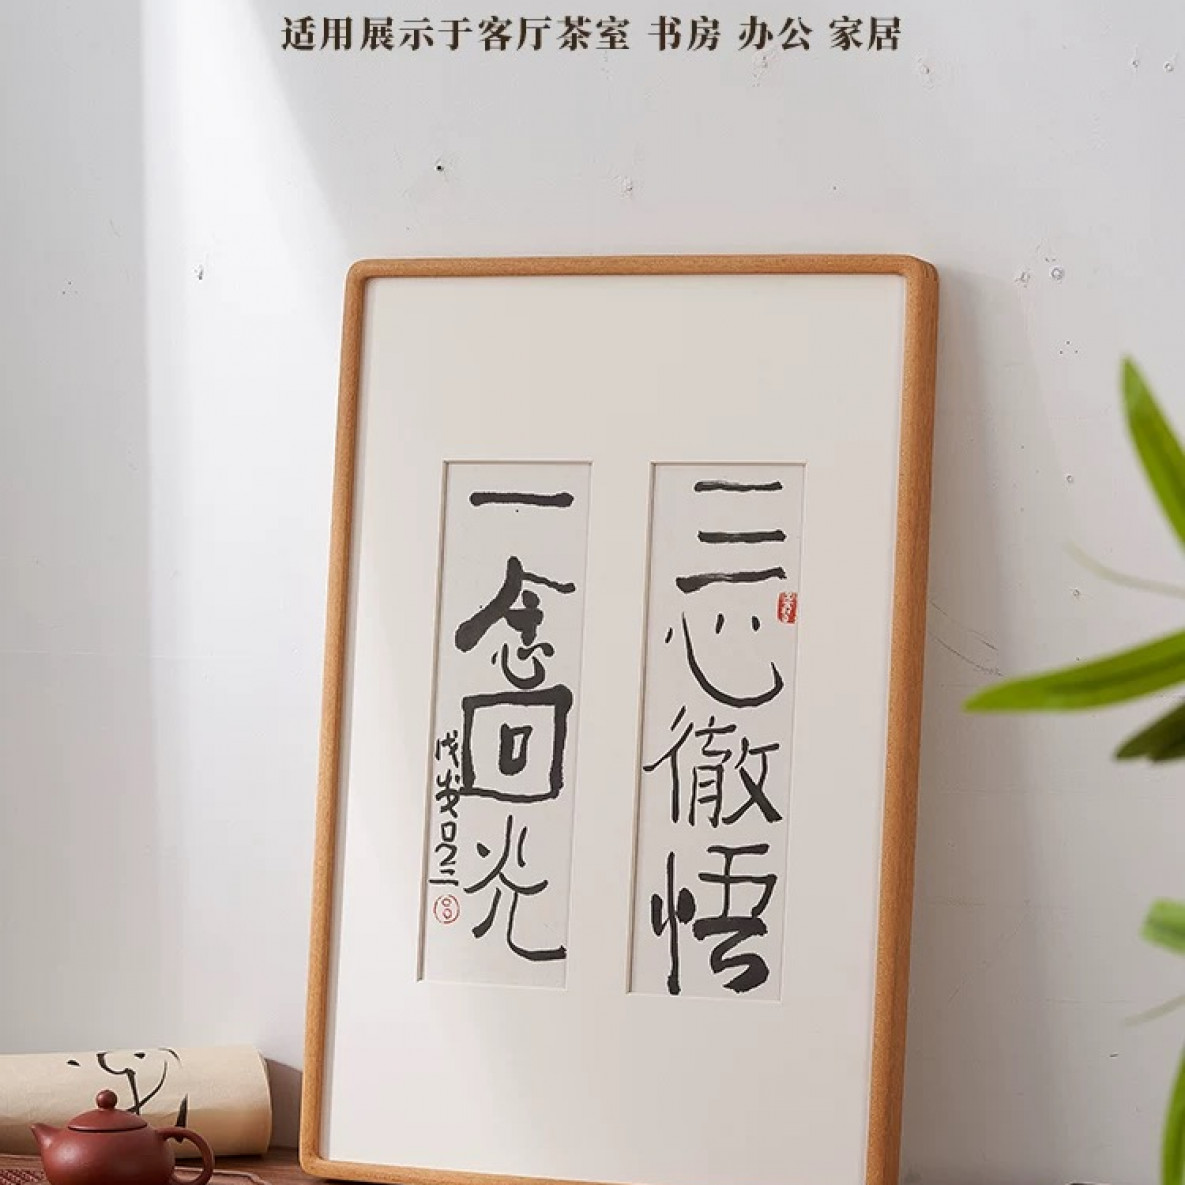 适用展示于客厅茶室 书房 办公 家居
三心徹悟
一念回光
戊戌